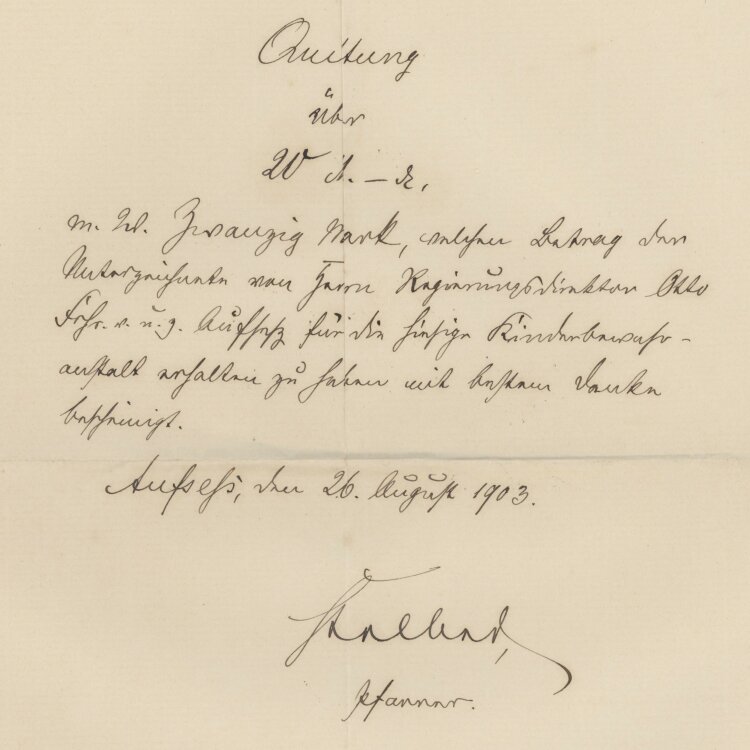 Quittung
über
20 M. — ₰,
m. W. Zwanzig Mark, welchen Betrag der
Unterzeichnete von Herrn Regierungsdirektor Otto
Frhr. v. u. z. Aufseß für die hiesige Kinderbewahr-
anstalt erhalten zu haben mit bestem Danke
bescheinigt.
Aufseß, den 26. August 1903.
Pfarrer.